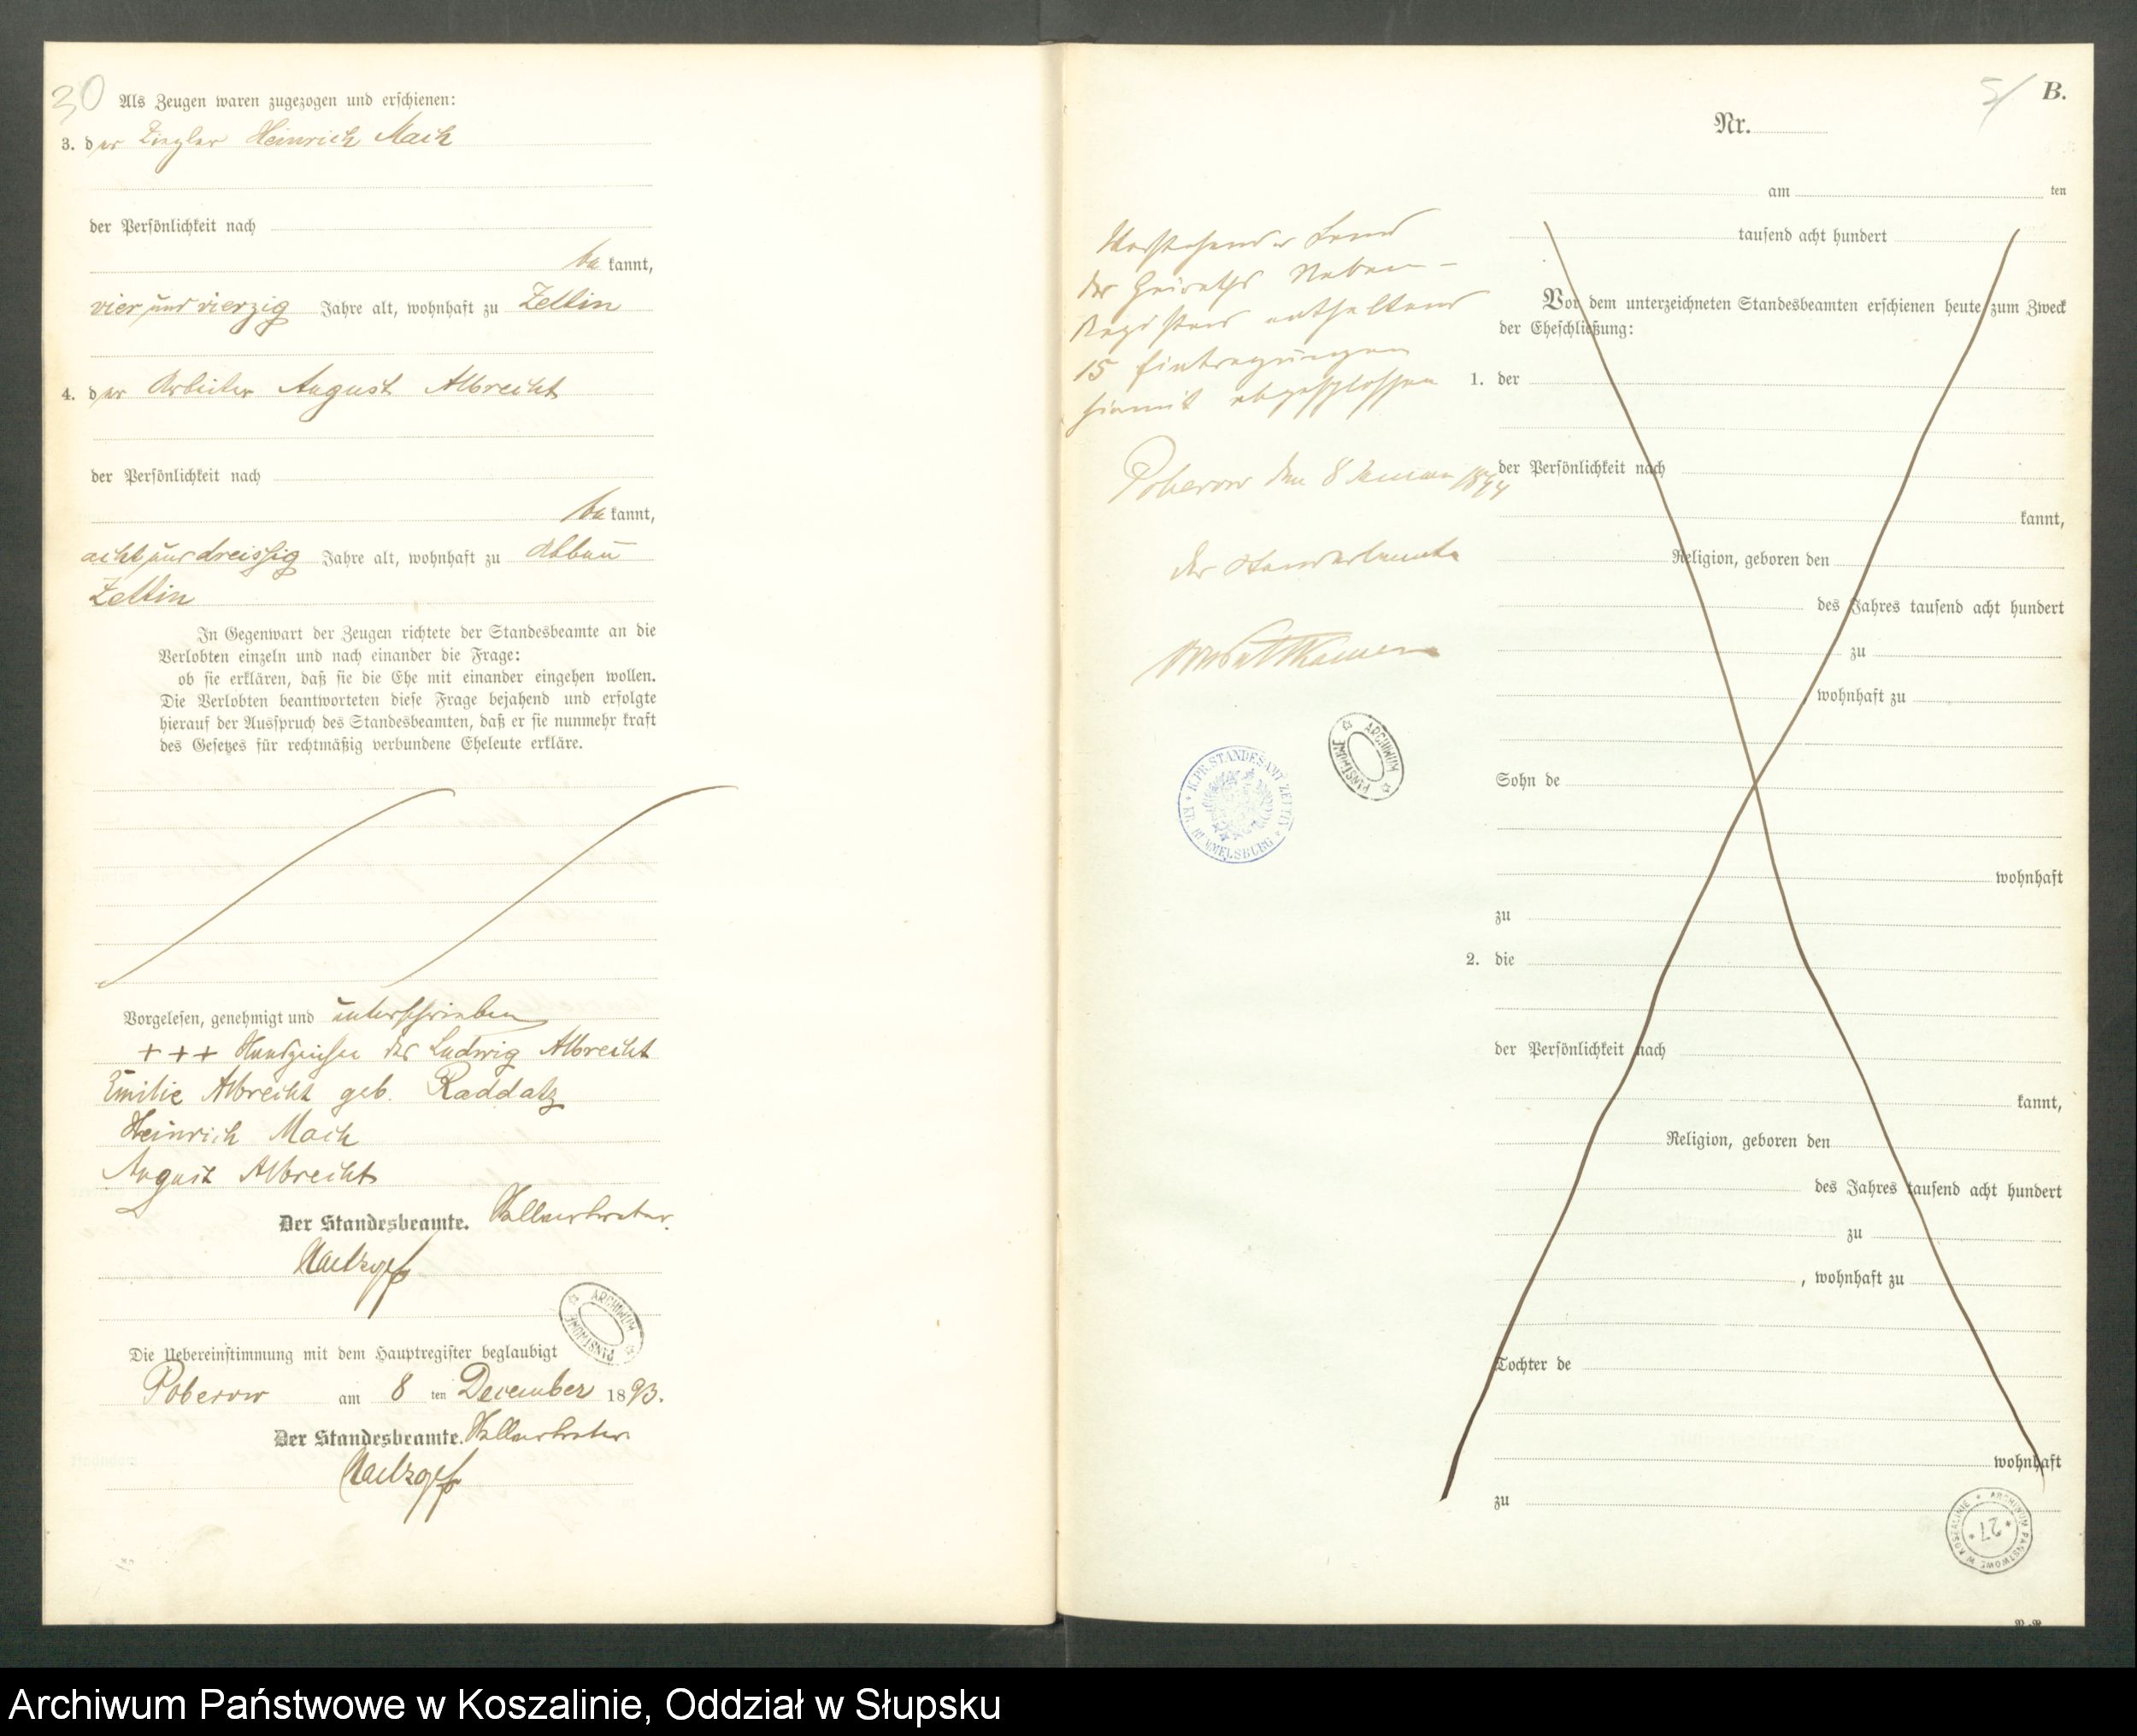 30
Als Zeugen waren zugezogen und erschienen:
3. der Ziegler Heinrich Mach
der Persönlichkeit nach
be kannt,
vier und vierzig Jahre alt, wohnhaft zu Zettin
4. der Arbeiter August Albrecht
der Persönlichkeit nach
be kannt,
acht und dreissig Jahre alt, wohnhaft zu Abbau
Zettin
In Gegenwart der Zeugen richtete der Standesbeamte an die
Verlobten einzeln und nach einander die Frage:
ob sie erklären, daß sie die Ehe mit einander eingehen wollen.
Die Verlobten beantworteten diese Frage bejahend und erfolgte
hierauf der Ausspruch des Standesbeamten, daß er sie nunmehr kraft
des Gesetzes für rechtmäßig verbundene Eheleute erkläre.
Vorgelesen, genehmigt und unterschrieben
+++ Handzeichen des Ludwig Albrecht
Emilie Albrecht geb. Raddatz
Heinrich Mach
August Albrecht
Der Standesbeamte. Stellvertreter.
ARCHIWUM PAŃSTWOWE
Die Uebereinstimmung mit dem Hauptregister beglaubigt
Poberow am 8 ten December 1893.
Der Standesbeamte. Stellvertreter.
B.
Nr.
am ten
tausend acht hundert
Vorstehender Band
des Heiraths Neben-
Registers enthaltend
15 Eintragungen
hiermit abgeschlossen
Poberow den 8 Januar 1894
der Standesbeamte
K. PR. STANDESAMT ZETTIN * KR. RUMMELSBURG *
ARCHIWUM PAŃSTWOWE
Vor dem unterzeichneten Standesbeamten erschienen heute zum Zweck
der Eheschließung:
1. der
der Persönlichkeit nach
kannt,
Religion, geboren den
des Jahres tausend acht hundert
zu
, wohnhaft zu
Sohn de
wohnhaft
zu
2. die
der Persönlichkeit nach
kannt,
Religion, geboren den
des Jahres tausend acht hundert
zu
, wohnhaft zu
Tochter de
wohnhaft
zu
ARCHIWUM PAŃSTWOWE W KOSZALINIE * 27 *
Archiwum Państwowe w Koszalinie, Oddział w Słupsku